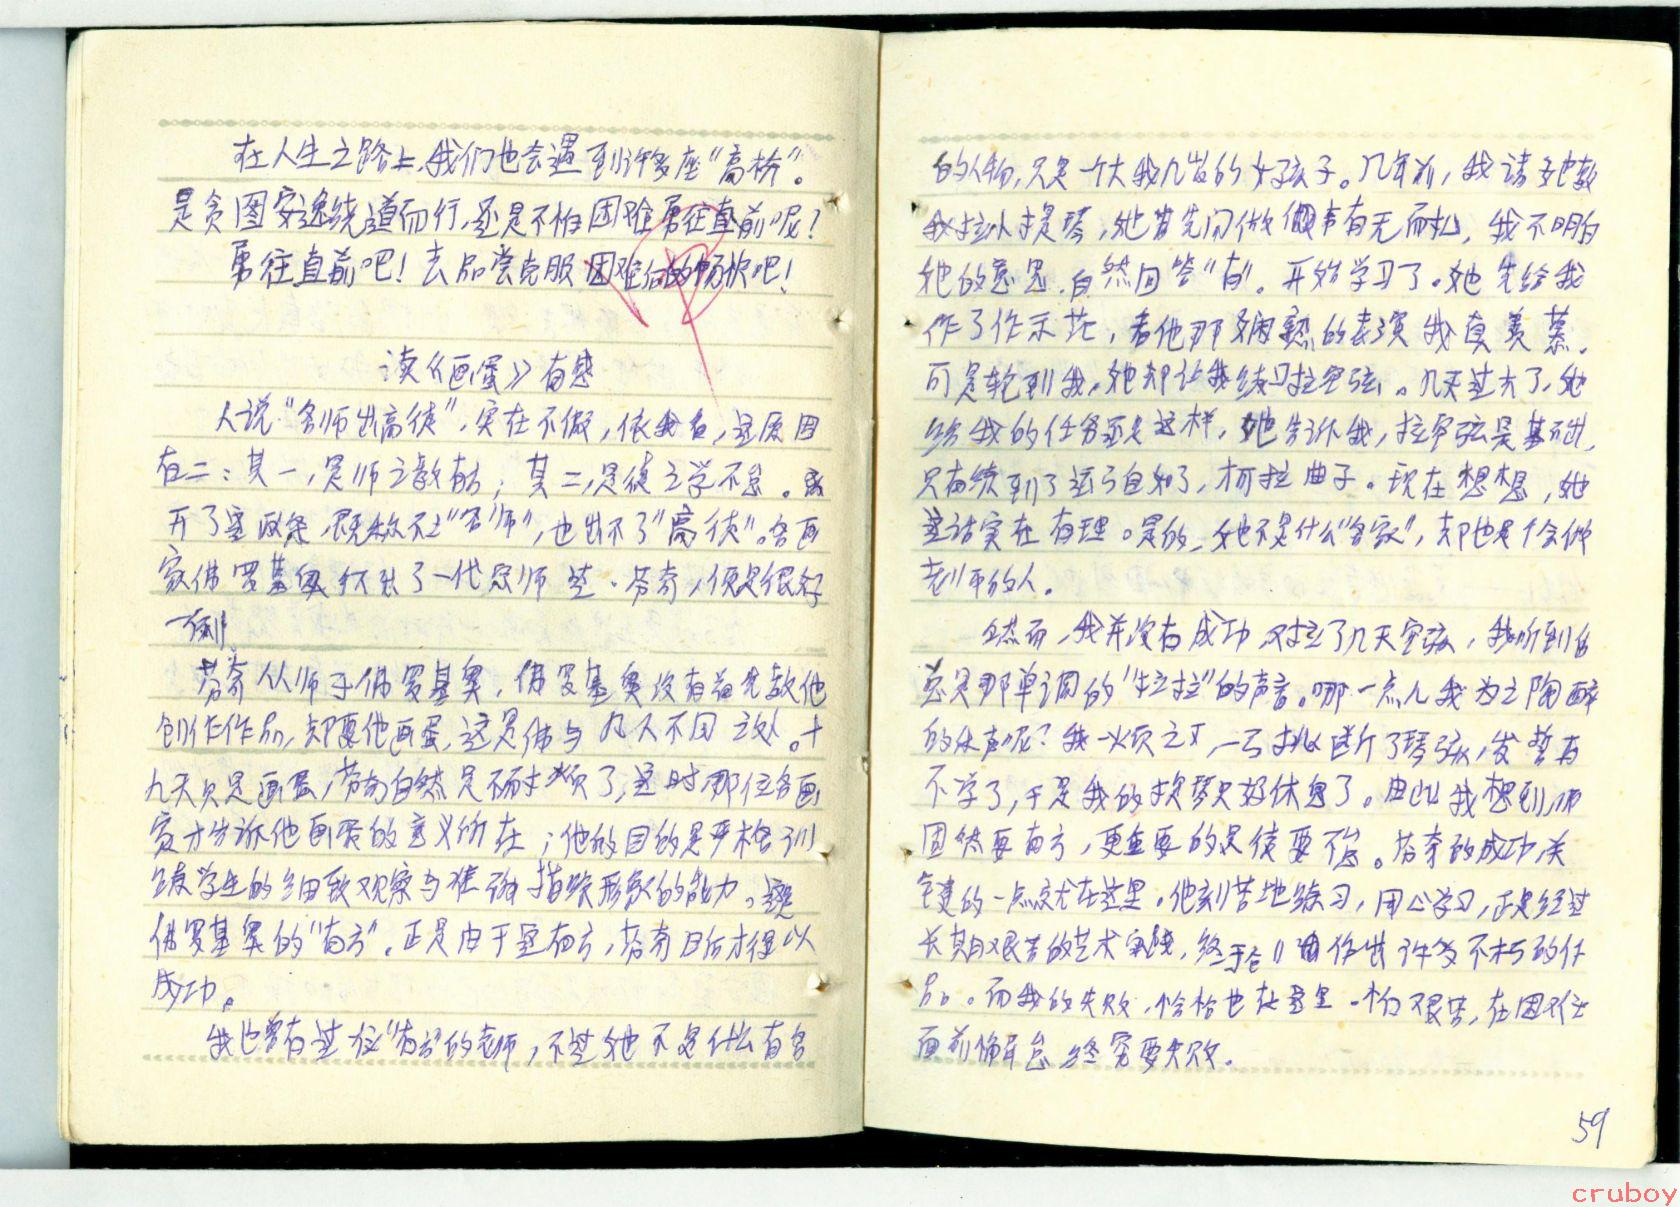 在人生之路上,我们也会遇到许多座“高桥”。
是贪图安逸绕道而行,还是不怕困难勇往直前呢?
勇往直前吧!去品尝克服困难后的畅快吧!
读《画蛋》有感
人说“名师出高徒”,实在不假,依我看,这原因
在二:其一,是师之教有方;其二,是徒之学不怠。离
开了这两条,既称不上“名师”,也出不了“高徒”。名画
家佛罗基奥教出了一代宗师芬·芬奇,便是很好
一例。
芬奇从师于佛罗基奥,佛罗基奥没有首先教他
创作作品,却要他画蛋,这是他与凡人不同之处。十
九天只是画蛋,芬奇自然是不耐烦了,这时那位名画
家才告诉他画蛋的意义所在;他的目的是严格训
练学生的细致观察与准确描绘形象的能力。这是
佛罗基奥的“有方”。正是由于这有方,芬奇日后才得以
成功。
我也曾有过位“有方”的老师,不过她不是什么有名
的人物,只是一个大我几岁的女孩子。几年前,我请她教
我拉小提琴,她首先问做做事有无耐心,我不明白
她的意思,自然回答“有”。开始学习了。她先给我
作了作示范,看他那娴熟的表演我真羡慕。
可是轮到我,她却让我练习拉空弦。几天过去了,她
给我的任务还是这样,她告诉我,拉空弦是基础,
只有练到了运弓自如了,才可拉曲子。现在想想,她
这话实在有理。是的,她不是什么“名家”,却也是个会做
老师的人。
然而,我并没有成功,只拉了几天空弦,我听到的
总是那单调的“拉拉”的声音。哪一点儿我为之陶醉
的乐声呢?我一烦之下,一弓挑断了琴弦,发誓再
不学了,于是我的提琴只好休息了。由此我想到,师
固然要有方,更重要的是徒要不怠。芬奇的成功,关
键的一点就在这里。他刻苦地练习,用心学习,正是经过
长期艰苦的艺术实践,终于创作出许多不朽的作
品。而我的失败,恰恰也在这里。怕艰苦,在困难
面前懈怠,终究要失败。
59
cruboy